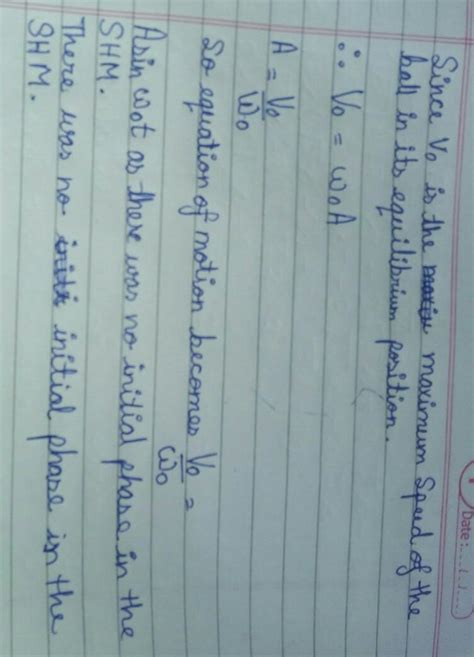 Date:....(..)....
Since V₀ is the maxim maximum speed of the
ball in its equilibrium position.
∴ V₀ = ω₀A
A = V₀/ω₀
So equation of motion becomes V₀/ω₀ =
Asin ω₀t as there was no initial phase in the
SHM.
There was no initi initial phase in the
SHM.